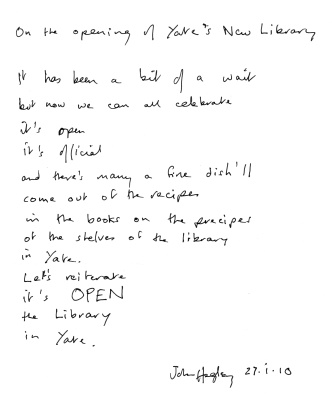 On the opening of Yate's New Library
It has been a bit of a wait
but now we can all celebrate
it's open
it's official
and there's many a fine dish'll
come out of the recipes
in the books on the precipes
of the shelves of the library
in Yate.
Let's reiterate
it's OPEN
the Library
in Yate.
John Hegley 27.i.10